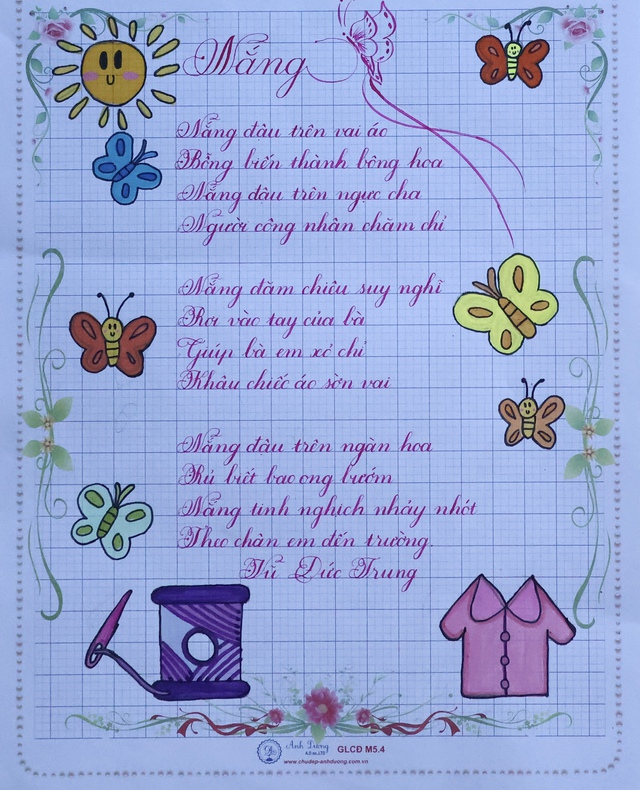 Nắng
Nắng đậu trên vai áo
Bỗng biến thành bông hoa
Nắng đậu trên ngực cha
Người công nhân chăm chỉ
Nắng đăm chiêu suy nghĩ
Rơi vào tay của bà
Giúp bà em xỏ chỉ
Khâu chiếc áo sờn vai
Nắng đậu trên ngàn hoa
Rủ biết bao ong bướm
Nắng tinh nghịch nhảy nhót
Theo chân em đến trường.
Từ Đức Trung
Ánh Dương
GLCĐ M5.4
www.chudep-anhduong.com.vn